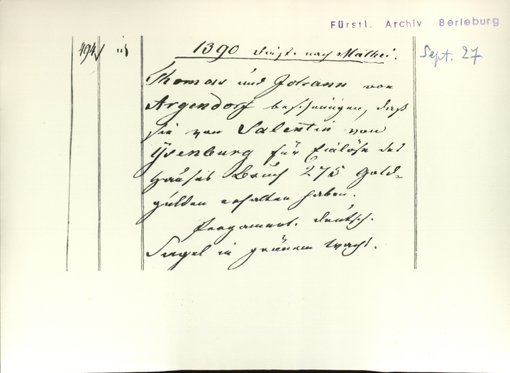 Fürstl. Archiv Berleburg
Sept. 27
494
1390 Dingst. nach Mathei.
Thomas und Johann von
Argendorf bescheinigen, daß
sie von Salentin von
Ysenburg für Einlöse des
Hauses Bruch 275 Gold-
gulden erhalten haben.
Pergament. deutsch.
Siegel in grünem Wachs.